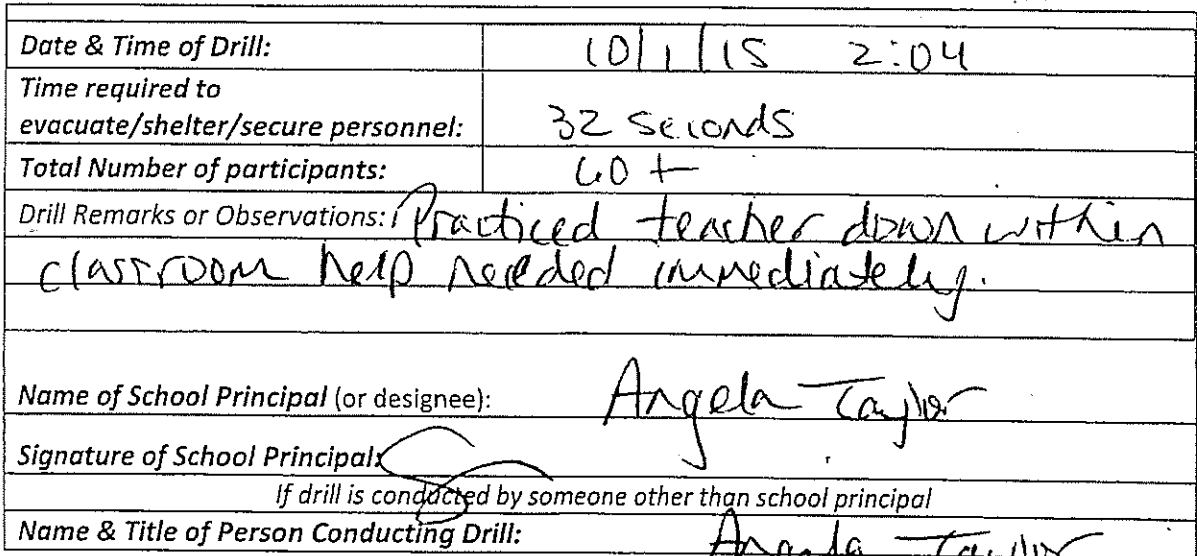 Date & Time of Drill: 10/1/15 2:04
Time required to
evacuate/shelter/secure personnel: 32 seconds
Total Number of participants: 60 +
Drill Remarks or Observations: Practiced teacher down within
classroom help needed immediately.
Name of School Principal (or designee): Angela Taylor
Signature of School Principal:
If drill is conducted by someone other than school principal
Name & Title of Person Conducting Drill: Angela Taylor